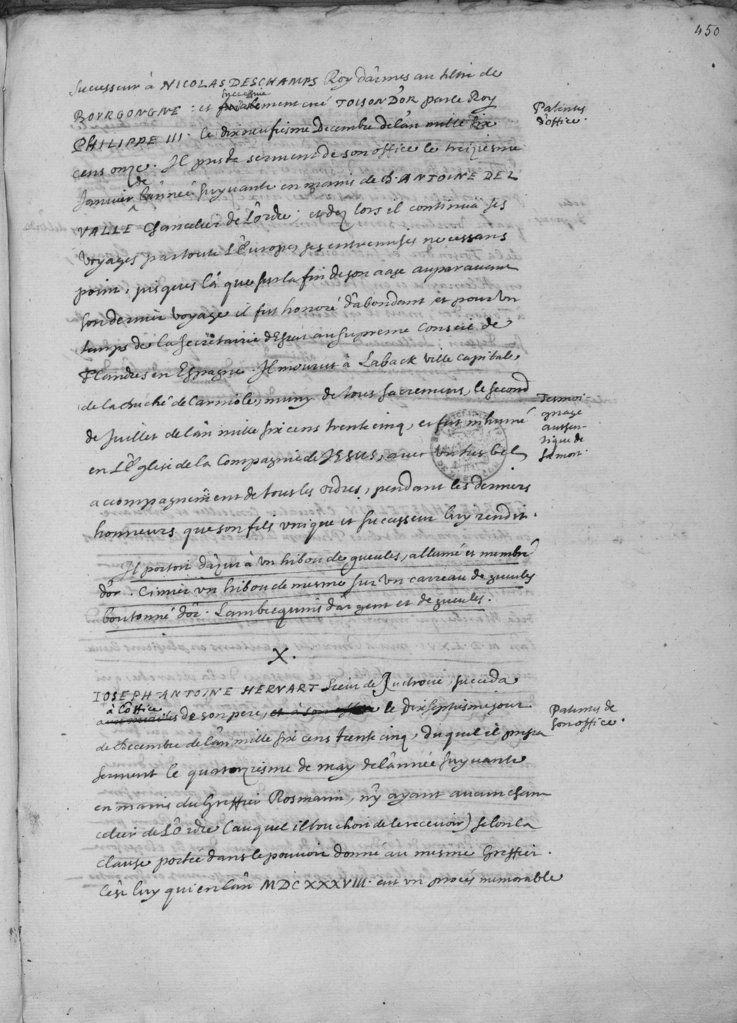 450
Successeur à NICOLAS DESCHAMPS Roy d'armes au tiltre de
BOVRGONGNE: et successivement creé TOISON D'OR par le Roy
Patentes
d'office.
PHILIPPE III. le dixneufiesme Decembre de l'an mille six
cens onze. Il presta serment de son office le treiziesme
Janvier de l'année suyvante en mains de D. ANTOINE DEL
VALLE Chancelier de l'ordre: et dez lors il continua ses
voyages par toute l'Europe, ses entremises ne cessans
point, jusques là que sur la fin de son aage auparavant
son dernier voyage il fut honoré d'abondant et pour un
temps de la Secretairie d'Estat au Supreme Conseil de
Flandres en Espagne. Il mourut à Laback ville capitale
de la Duché de Carniole, muny de tous sacremens, le second
Tesmoi-
gnage
authen-
tique de
sa mort.
de Juillet de l'an mille six cens trente cinq, et fut inhumé
en l'Eglise de la Compagnie de JESUS, avec un tres bel
accompagnement de tous les ordres, pendant les derniers
honneurs que son fils unique et successeur luy rendit.
Il portoit d'azur à un hibou de gueules, allumé et membré
d'or. Cimier un hibou de mesme sur un carreau de gueules
boutonné d'or. Lambrequins d'argent et de gueules.
X.
IOSEPH ANTOINE HERVART Sieur de succeda
à l'office de son pere, le dixseptiesme jour
Patentes de
son office.
de Decembre de l'an mille six cens trente cinq, duquel il presta
serment le quatorziesme de may de l'année suyvante
en mains du Greffier Rosmann, n'y ayant aucun Chan
celier de l'ordre (auquel il touchoit de le recevoir) selon la
clause portée dans le pouvoir donné au mesme Greffier.
C'est luy qui en l'an MDCXXXVIII. eut un procés memorable